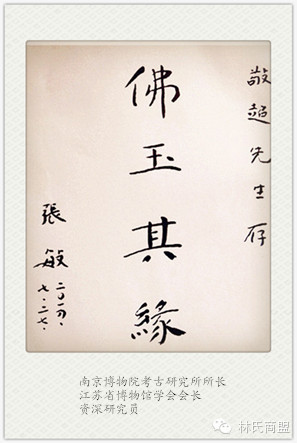 敬超先生存
佛玉其緣
張敏
二〇一四·
七·二七·
南京博物院考古研究所所长
江苏省博物馆学会会长
资深研究员
林氏商盟